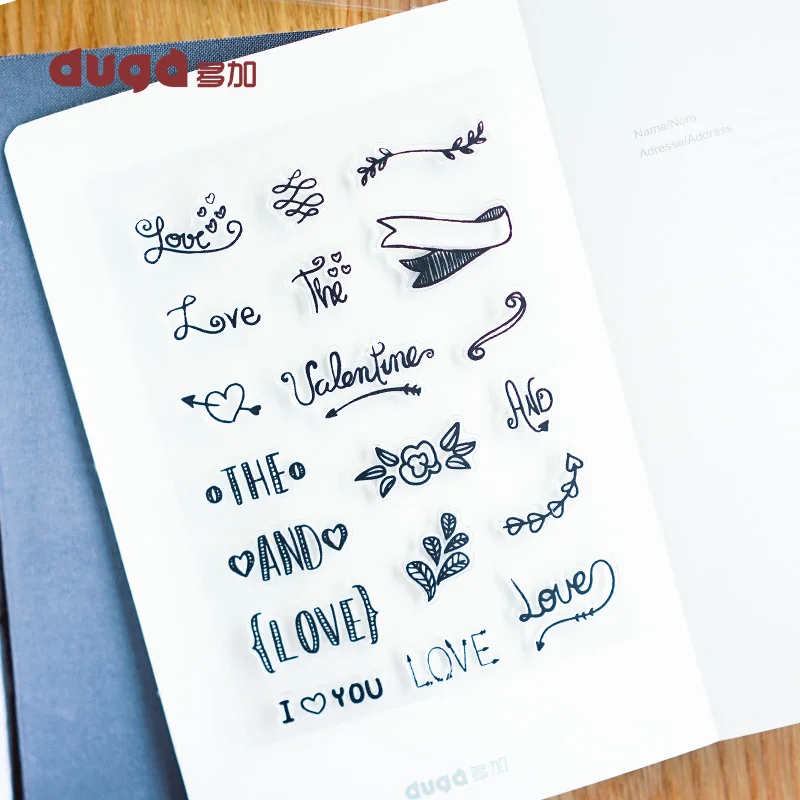 duga多加
Name/Nom
Adresse/Address
Love
The
Love
Valentine
AND
THE
AND
{LOVE}
Love
LOVE
I ♡ YOU
duga多加